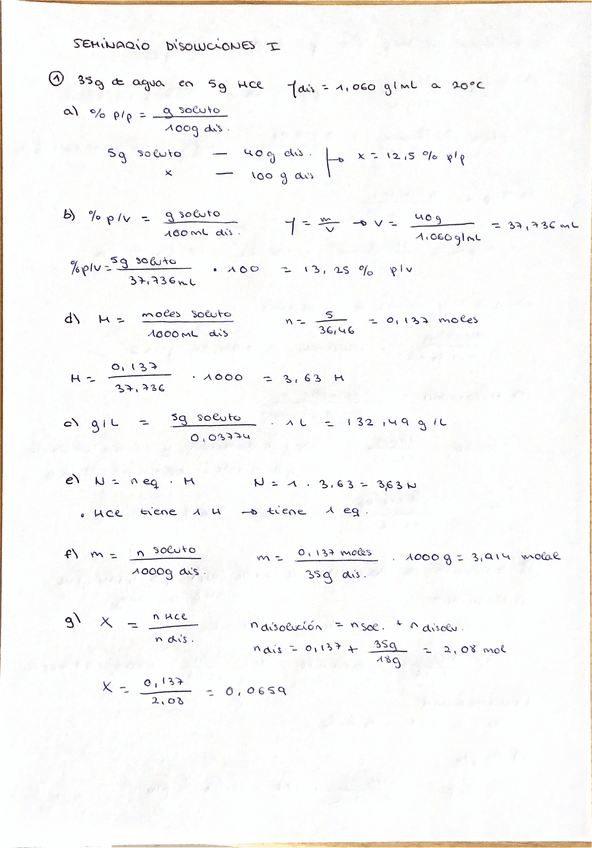 SEMINARIO DISOLUCIONES I
① 35g de agua en 5g HCl ρdis = 1,060 g/mL a 20ºC
a) % p/p = g soluto / 100g dis.
5g soluto — 40g dis.
x — 100 g dis → x = 12,5 % p/p
b) % p/v = g soluto / 100mL dis. ρ = m/v → v = 40g / 1,060g/mL = 37,736 mL
%p/v = 5g soluto / 37,736mL · 100 = 13,25 % p/v
d) M = moles soluto / 1000mL dis n = 5 / 36,46 = 0,137 moles
M = 0,137 / 37,736 · 1000 = 3,63 M
c) g/L = 5g soluto / 0,03774 · 1L = 132,49 g/L
e) N = n eq · M N = 1 · 3,63 = 3,63 N
• HCl tiene 1 H → tiene 1 eq.
f) m = n soluto / 1000g dis. m = 0,137 moles / 35g dis. · 1000g = 3,914 molal
g) X = n HCl / n dis. n disolución = n sol. + n disolv.
n dis = 0,137 + 35g / 18g = 2,08 mol
X = 0,137 / 2,08 = 0,0659